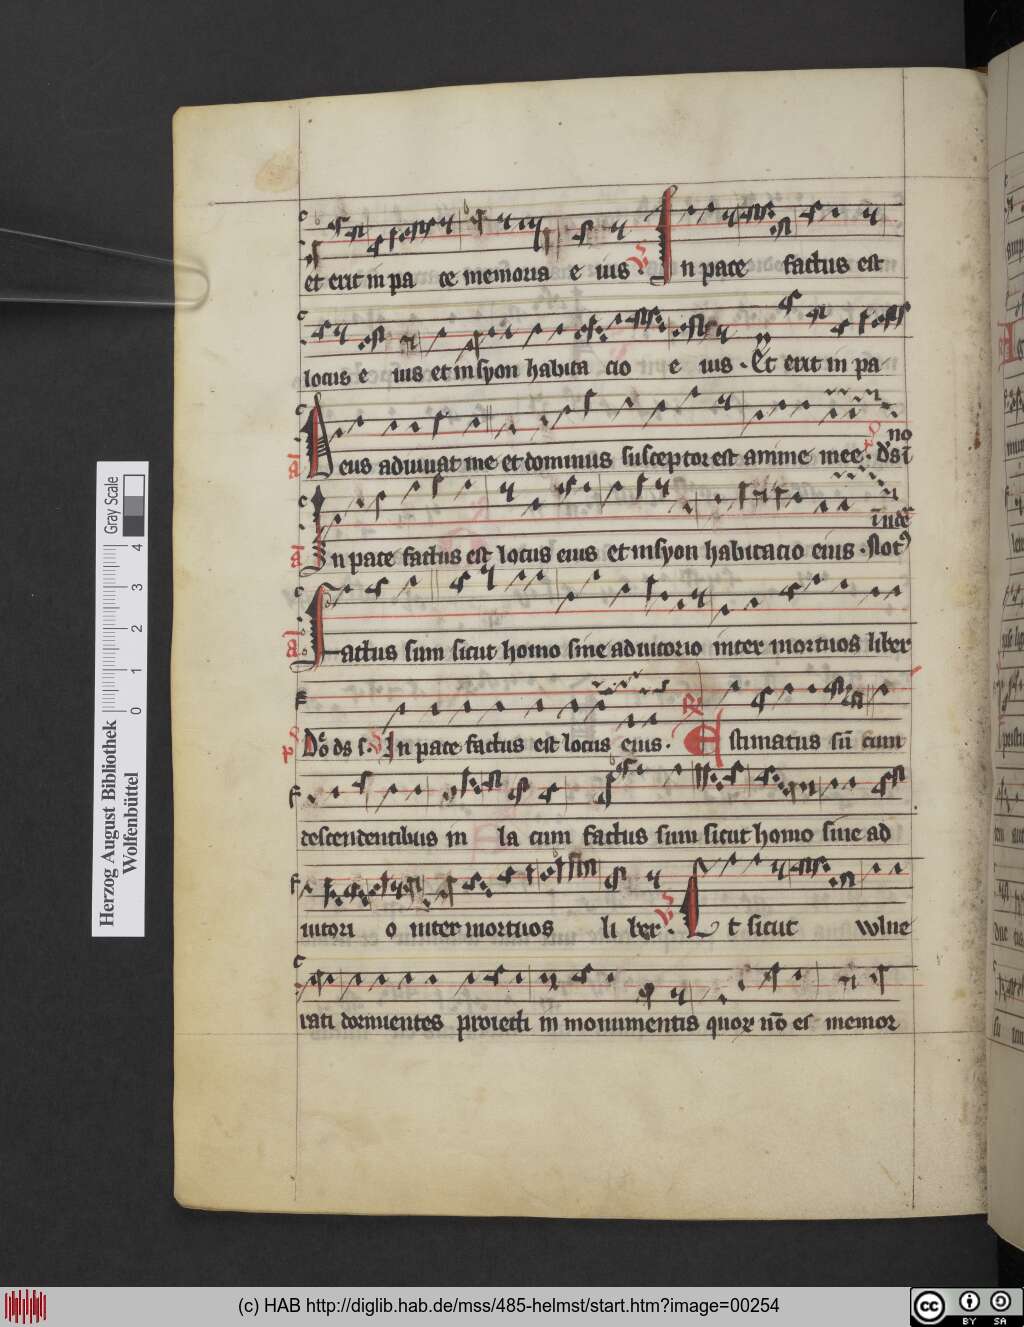 et erit in pa ce memoria e ius · V In pace factus est
locus e ius et in syon habita cio e ius · Et erit in pa
a Deus adiuuat me et dominus susceptor est anime mee · ps ds ī no
a In pace factus est locus eius et in syon habitacio eius · ī iudea Not9
a Factus sum sicut homo sine adiutorio inter mortuos liber
ps Dō ds s · V In pace factus est locus eius · R Estimatus sū cum
descendentibus in la cum factus sum sicut homo sine ad
iutori o inter mortuos li ber · V Et sicut wlne
rati dormientes proiecti in monumentis quor nō es memor
Herzog August Bibliothek
Wolfenbüttel
0 1 2 3 4
Gray Scale
(c) HAB http://diglib.hab.de/mss/485-helmst/start.htm?image=00254
cc BY SA